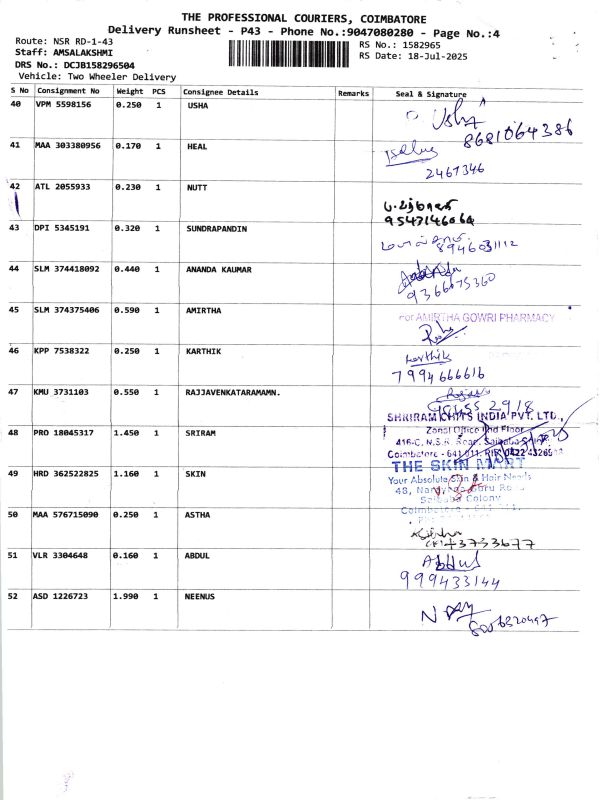 THE PROFESSIONAL COURIERS, COIMBATORE
Delivery Runsheet - P43 - Phone No.:9047080280 - Page No.:4
Route: NSR RD-1-43
RS No.: 1582965
Staff: AMSALAKSHMI
RS Date: 18-Jul-2025
DRS No.: DCJB158296504
Vehicle: Two Wheeler Delivery
S No Consignment No Weight PCS Consignee Details Remarks Seal & Signature
40 VPM 5598156 0.250 1 USHA
Usha
8681064386
41 MAA 303380956 0.170 1 HEAL
2467346
42 ATL 2055933 0.230 1 NUTT
9547146064
43 DPI 5345191 0.320 1 SUNDRAPANDIN
44 SLM 374418092 0.440 1 ANANDA KAUMAR
9366075360
45 SLM 374375406 0.590 1 AMIRTHA
For AMIRTHA GOWRI PHARMACY
46 KPP 7538322 0.250 1 KARTHIK
Karthik
7994666616
47 KMU 3731103 0.550 1 RAJJAVENKATARAMAMN.
SHRIRAM CHITS INDIA PVT. LTD.,
48 PRO 18045317 1.450 1 SRIRAM
Zonal Office IInd Floor
416-C, N.S.R. Road, Saibaba
Coimbatore - 641 011. 0422 43265
THE SKIN MART
49 HRD 362522825 1.160 1 SKIN
Your Absolute Skin & Hair Needs
48, Guru Road
Saibaba Colony
Coimbatore
50 MAA 576715090 0.250 1 ASTHA
51 VLR 3304648 0.160 1 ABDUL
Abdul
999433144
52 ASD 1226723 1.990 1 NEENUS